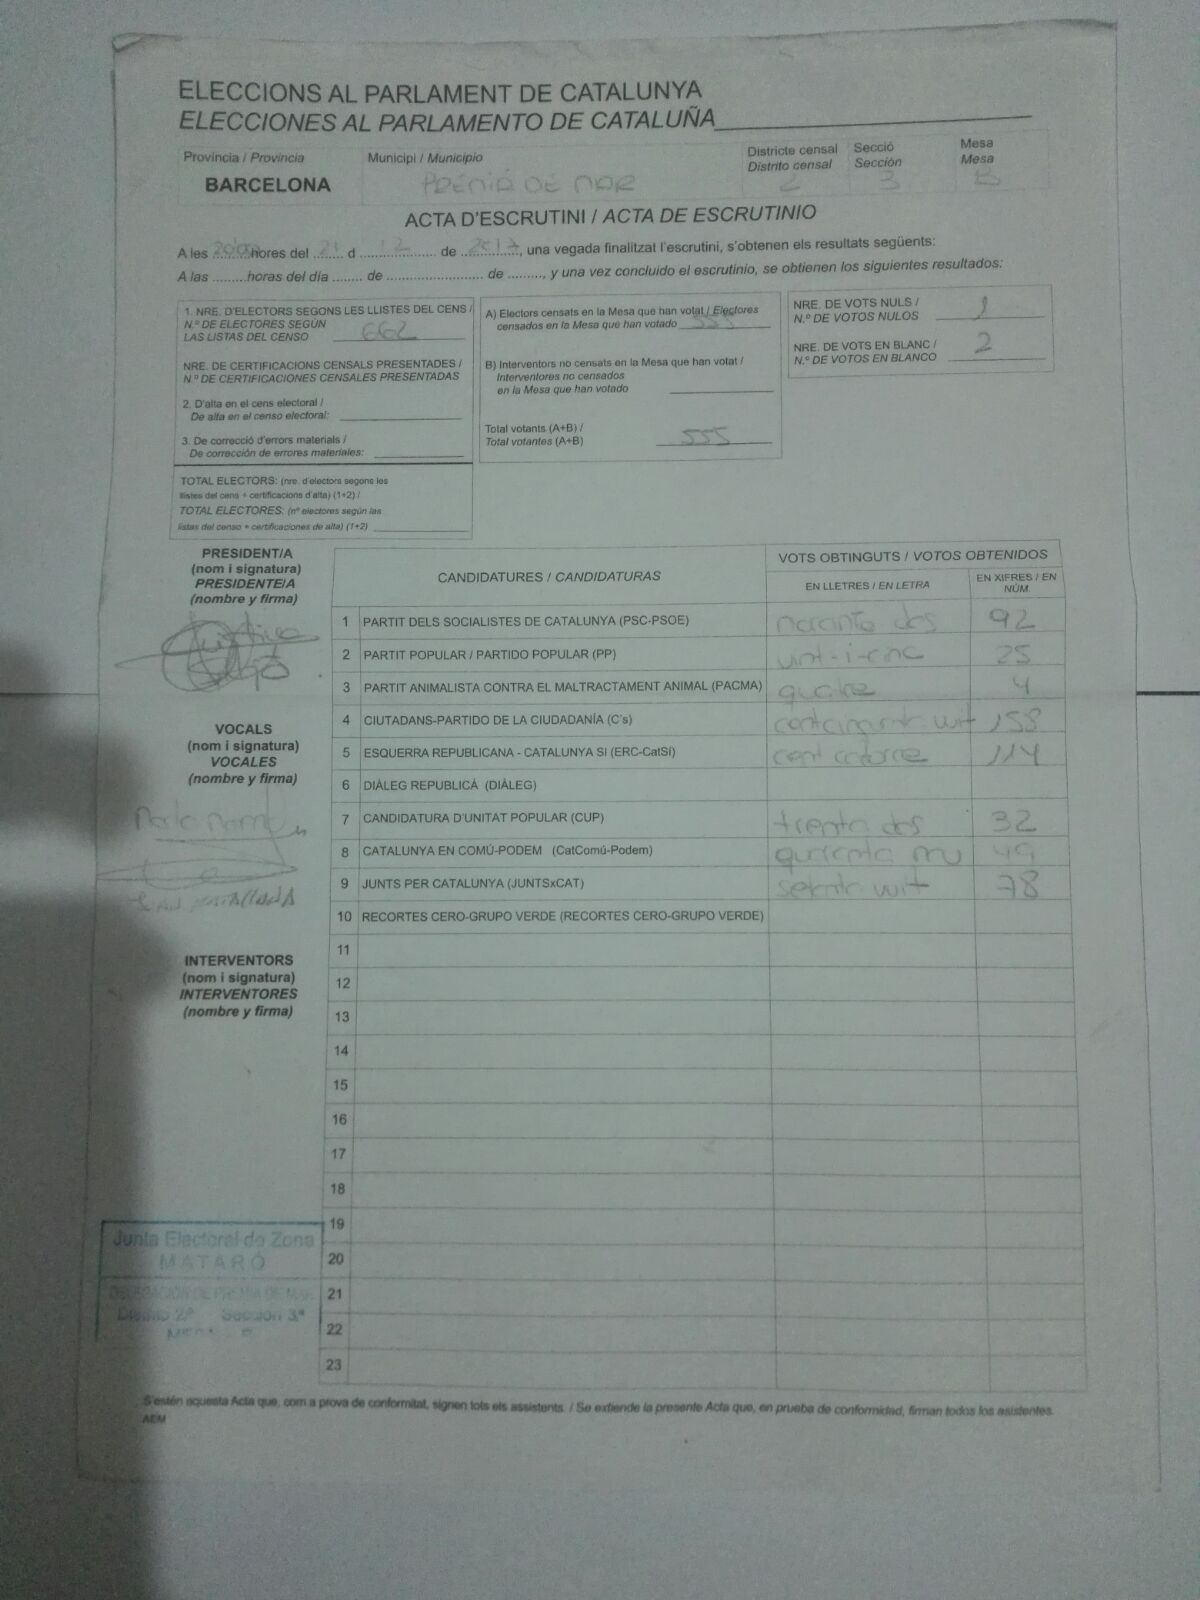 ELECCIONS AL PARLAMENT DE CATALUNYA
ELECCIONES AL PARLAMENTO DE CATALUÑA
Província / Provincia
BARCELONA
Municipi / Municipio
PREMIÀ DE MAR
Districte censal
Distrito censal
2
Secció
Sección
3
Mesa
Mesa
B
ACTA D'ESCRUTINI / ACTA DE ESCRUTINIO
A les hores del 21 d 12 de 2017, una vegada finalitzat l'escrutini, s'obtenen els resultats següents:
A las ........horas del día ....... de ........................ de ........., y una vez concluido el escrutinio, se obtienen los siguientes resultados:
1. NRE. D'ELECTORS SEGONS LES LLISTES DEL CENS /
N.º DE ELECTORES SEGÚN
LAS LISTAS DEL CENSO 662
NRE. DE CERTIFICACIONS CENSALS PRESENTADES /
N.º DE CERTIFICACIONES CENSALES PRESENTADAS
2. D'alta en el cens electoral /
De alta en el censo electoral:
3. De correcció d'errors materials /
De corrección de errores materiales:
TOTAL ELECTORS: (nre. d'electors segons les
llistes del cens + certificacions d'alta) (1+2) /
TOTAL ELECTORES: (nº electores según las
listas del censo + certificaciones de alta) (1+2)
A) Electors censats en la Mesa que han votat / Electores
censados en la Mesa que han votado 555
B) Interventors no censats en la Mesa que han votat /
Interventores no censados
en la Mesa que han votado
Total votants (A+B) /
Total votantes (A+B) 555
NRE. DE VOTS NULS /
N.º DE VOTOS NULOS 1
NRE. DE VOTS EN BLANC /
N.º DE VOTOS EN BLANCO 2
PRESIDENT/A
(nom i signatura)
PRESIDENTE/A
(nombre y firma)
VOCALS
(nom i signatura)
VOCALES
(nombre y firma)
INTERVENTORS
(nom i signatura)
INTERVENTORES
(nombre y firma)
CANDIDATURES / CANDIDATURAS
VOTS OBTINGUTS / VOTOS OBTENIDOS
EN LLETRES / EN LETRA
EN XIFRES / EN
NÚM.
1 PARTIT DELS SOCIALISTES DE CATALUNYA (PSC-PSOE) noranta dos 92
2 PARTIT POPULAR / PARTIDO POPULAR (PP) vint-i-cinc 25
3 PARTIT ANIMALISTA CONTRA EL MALTRACTAMENT ANIMAL (PACMA) quatre 4
4 CIUTADANS-PARTIDO DE LA CIUDADANÍA (C's) 158
5 ESQUERRA REPUBLICANA - CATALUNYA SI (ERC-CatSí) cent catorce 114
6 DIÀLEG REPUBLICÀ (DIÀLEG)
7 CANDIDATURA D'UNITAT POPULAR (CUP) trenta dos 32
8 CATALUNYA EN COMÚ-PODEM (CatComú-Podem) quaranta nou 49
9 JUNTS PER CATALUNYA (JUNTSxCAT) setanta vuit 78
10 RECORTES CERO-GRUPO VERDE (RECORTES CERO-GRUPO VERDE)
11
12
13
14
15
16
17
18
19
20
21
22
23
Junta Electoral de Zona
MATARÓ
DELEGACIÓN DE PREMIA DE MAR
Distrito 2.º Sección 3.ª
S'estén aquesta Acta que, com a prova de conformitat, signen tots els assistents. / Se extiende la presente Acta que, en prueba de conformidad, firman todos los asistentes.
AEM